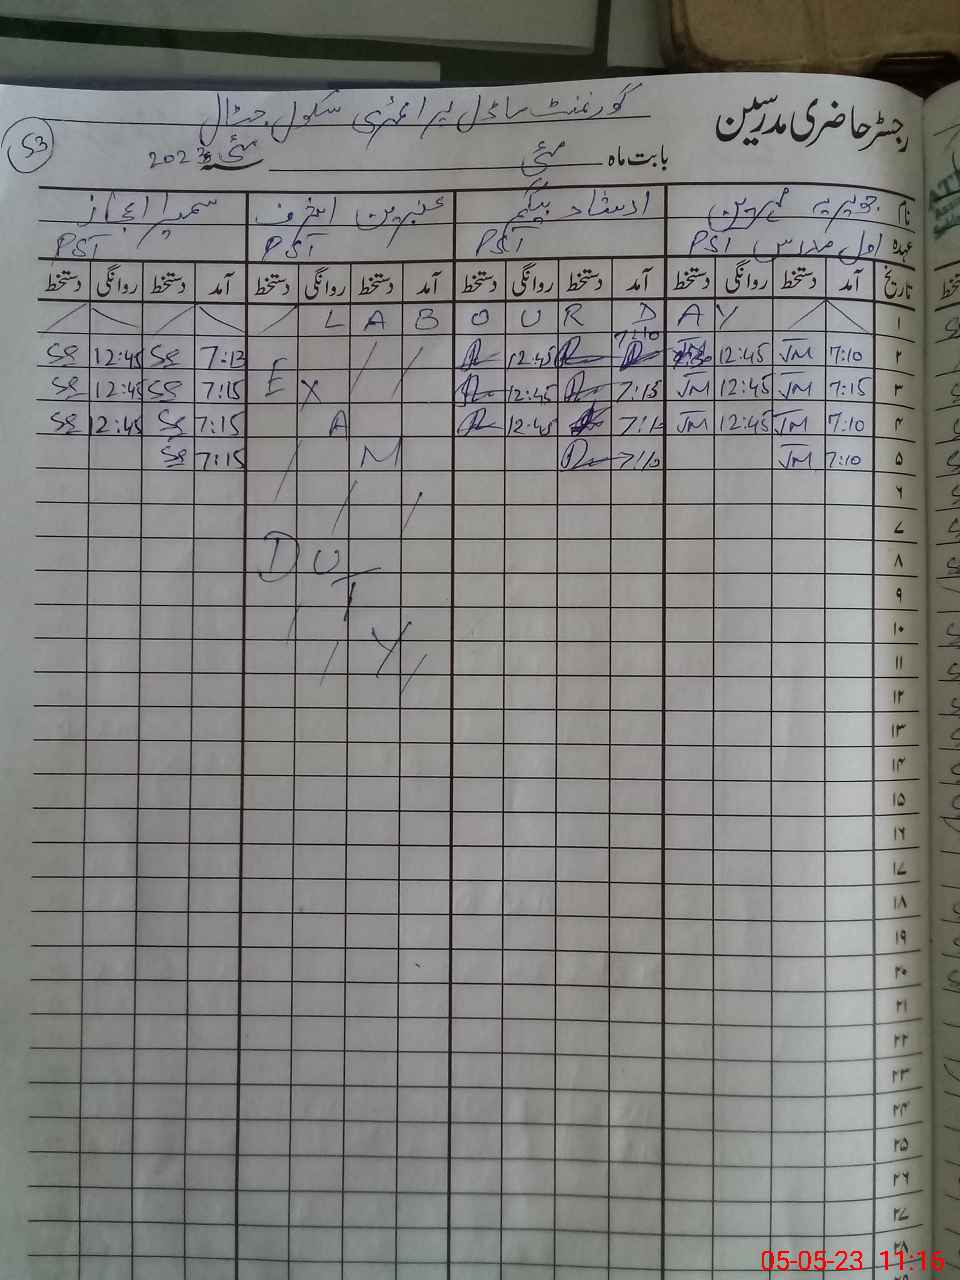 رجسٹر حاضری مدرسین
گورنمنٹ ماڈل پرائمری سکول جٹال
53
بابت ماہ مئی سنہ مئی 2023
نام جویریہ مہرین ارشاد بیگم عنبرین اشرف سمیرا اعجاز
عہدہ اول مدرس PST PST PST PST
تاریخ آمد دستخط روانگی دستخط آمد دستخط روانگی دستخط آمد دستخط روانگی دستخط آمد دستخط روانگی دستخط
۱ L A B O U R D A Y
۲ 7:10 JM 12:45 JM 7:10 12:45 7:13 SE 12:45 SE
۳ 7:15 JM 12:45 JM 7:15 12:45 E X 7:15 SE 12:45 SE
۴ 7:10 JM 12:45 JM 7:10 12:45 A 7:15 SE 12:45 SE
۵ 7:10 JM 7:10 M 7:15 SE
۶
۷
۸ D U
۹ T
۱۰ Y
۱۱
۱۲
۱۳
۱۴
۱۵
۱۶
۱۷
۱۸
۱۹
۲۰
۲۱
۲۲
۲۳
۲۴
۲۵
۲۶
۲۷
۲۸
05-05-23 11:16